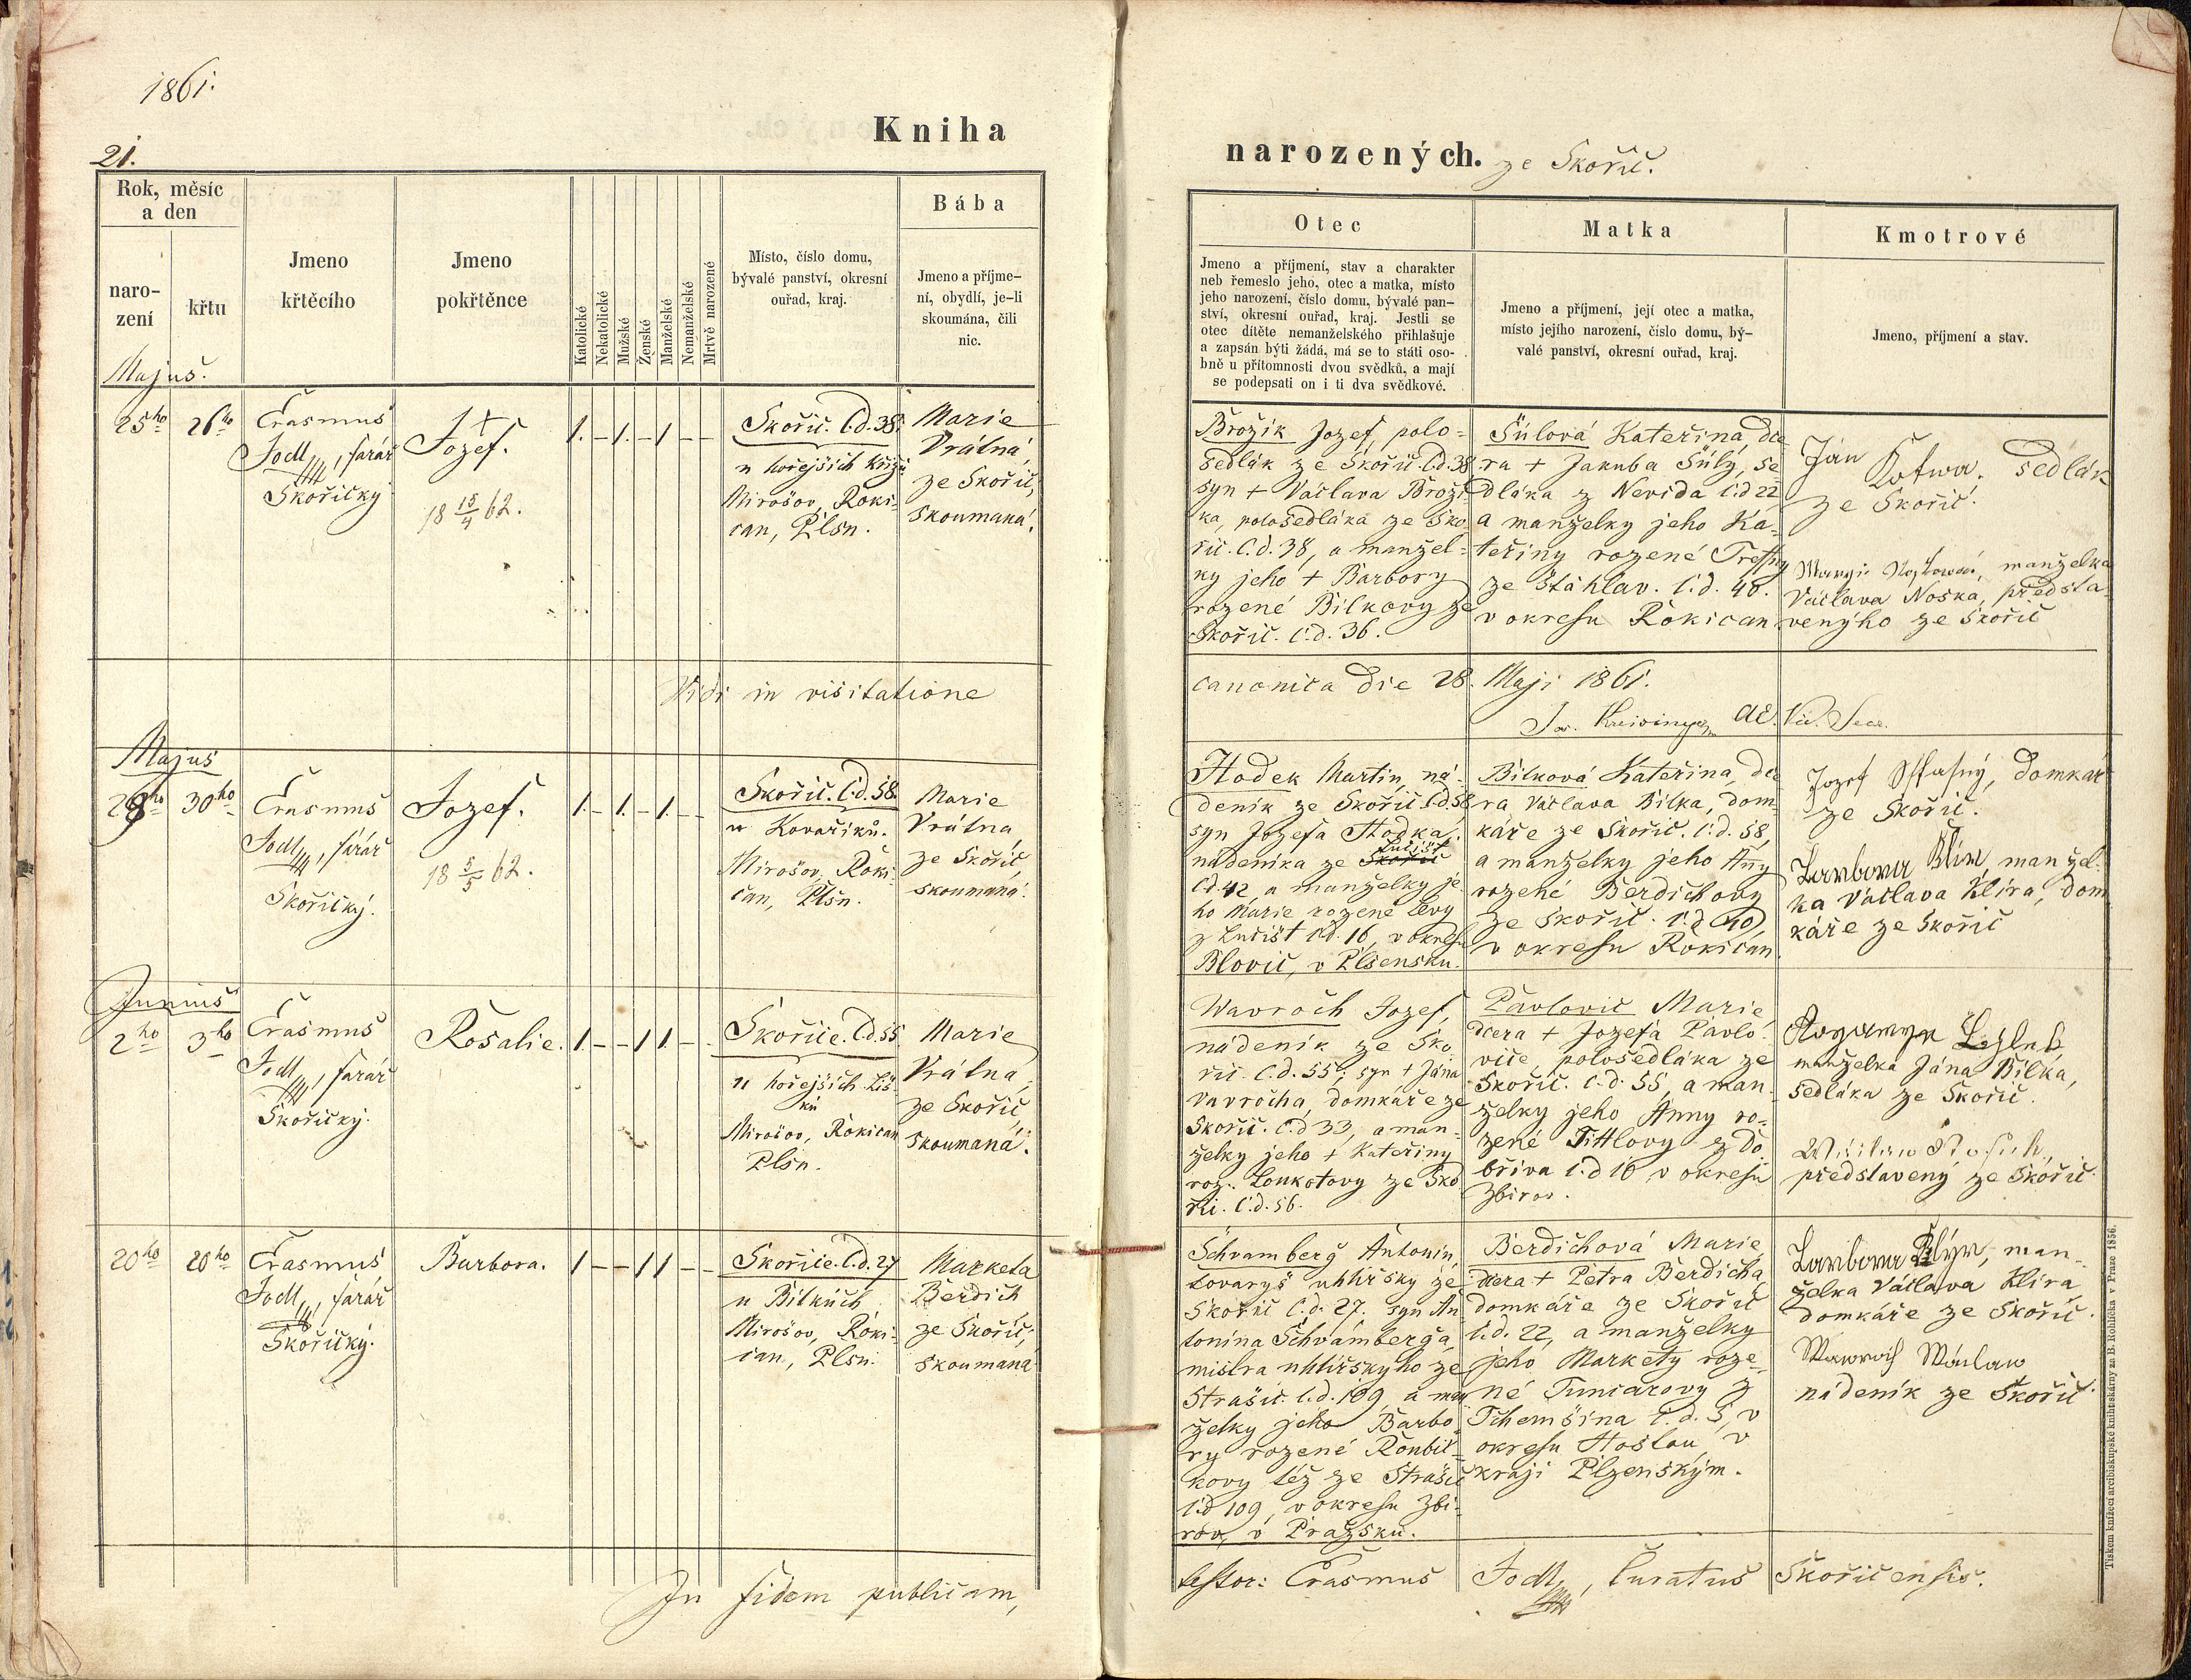 1861.
21.
Kniha
narozených. ze Skořič.
Rok, měsíc
a den
naro-
zení
křtu
Jmeno
křtěcího
Jmeno
pokřtěnce
Katolické
Nekatolické
Mužské
Ženské
Manželské
Nemanželské
Mrtvě narozené
Místo, číslo domu,
bývalé panství, okresní
ouřad, kraj.
Bába
Jmeno a příjme-
ní, obydlí, je-li
skoumána, čili
nic.
Otec
Jmeno a příjmení, stav a charakter
neb řemeslo jeho, otec a matka, místo
jeho narození, číslo domu, bývalé pan-
ství, okresní ouřad, kraj. Jestli se
otec dítěte nemanželského přihlašuje
a zapsán býti žádá, má se to státi oso-
bně u přítomnosti dvou svědků, a mají
se podepsati on i ti dva svědkové.
Matka
Jmeno a příjmení, její otec a matka,
místo jejího narození, číslo domu, bý-
valé panství, okresní ouřad, kraj.
Kmotrové
Jmeno, příjmení a stav.
Majus.
25ho
26ho
Erasmus
Jodl, farář
Skořický
+
Jozef.
18 15/4 62.
1. – 1. – 1 – –
Skořič. č.d. 38.
u hořejších Křížů
Mirošov, Roki-
can, Plsn.
Marie
Vrátná,
ze Skořič,
skoumaná.
Brožík Jozef, polo-
sedlák ze Skořič č.d. 38
syn + Václava Broží-
ka, polosedláka ze Sko-
řič. č.d. 38, a manžel-
ky jeho + Barbory
rozené Bílkovy ze
Skořič. č.d. 36.
Šůlová Kateřina, dce
ra + Jakuba Šůly, se
dláka z Nevida č.d 22
a manželky jeho Ka-
teřiny rozené
ze Štáhlav. č.d. 40.
v okresu Rokican
Ján Kotwa. sedlák
ze Skořič.
manželka
Václava Noska, předsta-
venýho ze Skořič
Vidi in visitatione
canonica die 28. Maji 1861.
Vic. Secr.
Majus
30ho
Erasmus
Jodl, farář
Skořický.
Jozef.
18 5/5 62.
1. – 1. – 1. – –
Skořič. č.d. 58.
u Kovaříků.
Mirošov, Roki-
can, Plsn.
Marie
Vrátna,
ze Skořič,
skoumaná.
Hodek Martin, ná-
deník ze Skořič č.d. 58
syn Jozefa Hodka,
Lučišť
nádeníka ze Skořič
č.d 42, a manželky je-
ho Marie rozené Levy
z Lučišť č.d. 16, v okresu
Blovic, v Plsensku.
Bílková Kateřina, dce
ra Václava Bílka, dom-
káře ze Skořič. č.d. 58,
a manželky jeho Anny
rozené Berdichovy
ze Skořič. č.d 40,
v okresu Rokican.
Jozef Stťasný, domkář
ze Skořič.
Barbora Klír, manžel-
ka Václava Klíra, dom
káře ze Skořič
Junius
2ho
3ho
Erasmus
Jodl, farář
Skořický.
Rosalie.
1. – – 1 1. – –
Skořice. č.d. 55
u hořejších Liš-
ků
Mirošov, Rokican
Plsn.
Marie
Vrátna,
ze Skořič
skoumaná.
Wavroch Jozef,
nádeník ze Sko-
řič. č.d. 55, syn + Jána
Vavrocha, domkáře ze
Skořič. č.d 33, a man-
želky jeho + Kateřiny
roz. Loukotovy ze Sko
řič. č.d. 56.
Pavlovic Marie
dcera + Jozefa Pavlo-
vice, polosedláka ze
Skořič. č.d. 55, a man-
želky jeho Anny ro-
zené Tittlovy z Do
bříva č.d 16 v okresu
Zbirov.
manželka Jána Bílka,
sedláka ze Skořič.
představený ze Skořič.
20ho
20ho
Erasmus
Jodl, farář
Skořický.
Barbora.
1 – – 1 1 – –
Skořice. č.d. 27
u Bílkúch
Mirošov, Roki-
can, Plsn.
Marketa
Berdich
ze Skořič,
skoumaná
Schvamberg Antonín,
tovaryš uhlířský ze
Skořič č.d. 27. syn An
tonina Schvamberga,
mistra uhlířskyho ze
Strašic. č.d. 109, a man
želky jeho Barbo-
ry rozené Roubil-
kovy též ze Strašic
č.d 109, v okresu Zbi-
rov, v Pražsku.
Berdichová Marie
dcera + Petra Berdicha,
domkáře ze Skořič
č.d. 22, a manželky
jeho Markety roze-
né Tunciarovy z
Tchemšina č.d. 5, v
okresu Hostou, v
kraji Plzenským.
Barbora Klýr, man-
želka Václava Klíra
domkáře ze Skořič.
Wawroch Wáclaw
nádeník ze Skořič.
In fidem publicam,
testor: Erasmus Jodl, Curatus Skořicensis.
Tiskem knížecí arcibiskupské knihtiskárny za B. Rohlíčka v Praze 1856.